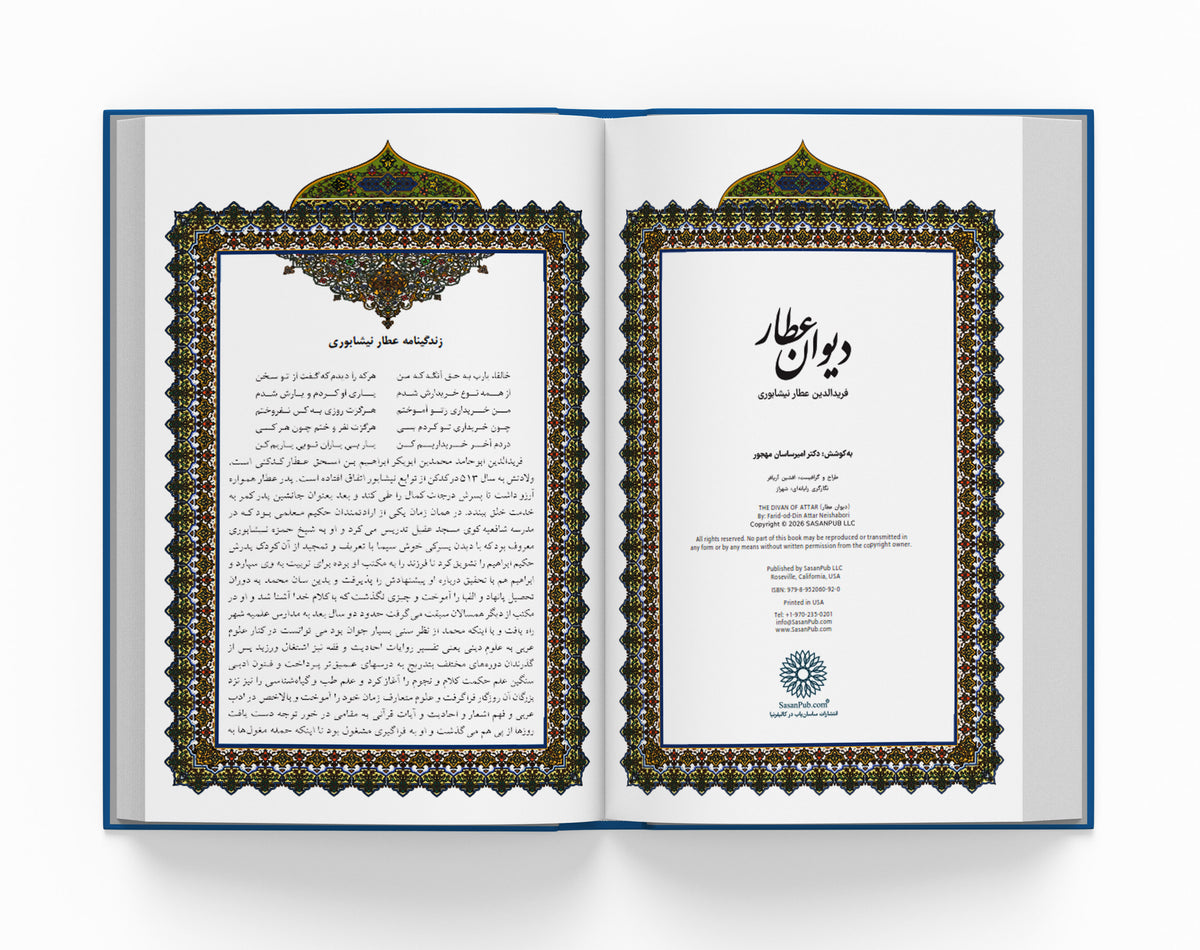 دیوان عطار
فریدالدین عطار نیشابوری
به‌کوشش: دکتر امیرساسان مهجور
طراح و گرافیست: افشین آریافر
نگارگری رایانه‌ای: شهراز
THE DIVAN OF ATTAR (دیوان عطار)
By: Farid-od-Din Attar Neishabori
Copyright © 2026 SASANPUB LLC
All rights reserved. No part of this book may be reproduced or transmitted in
any form or by any means without written permission from the copyright owner.
Published by SasanPub LLC
Roseville, California, USA
ISBN: 979-8-952060-92-0
Printed in USA
Tel: +1-970-235-0201
info@SasanPub.com
www.SasanPub.com
SasanPub.com
انتشارات ساسان‌پاب در کالیفرنیا
زندگینامه عطار نیشابوری
خالقا، یارب به حق آنکه که من هرکه را دیدم که گفت از تو سخن
از همه نوع خریدارش شدم یاری او کردم و یارش شدم
من خریداری زتو آموختم هرگزت روزی به کس نفروختم
چون خریداری تو کردم بسی هرگزت نفروختم چون هرکسی
دردم آخر خریداریم کن یار بی یاران تویی یاریم کن
فریدالدین ابوحامد محمدبن ابوبکر ابراهیم بن اسحق عطار کدکنی است.
ولادتش به سال ۵۱۳ در کدکن از توابع نیشابور اتفاق افتاده است. پدر عطار همواره
آرزو داشت تا پسرش درجت کمال را طی کند و بعد بعنوان جانشین پدر کمر به
خدمت خلق ببندد. در همان زمان یکی از ارادتمندان حکیم معلمی بود که در
مدرسه شافعیه کوی مسجد عقیل تدریس می کرد و او به شیخ حمزه نیشابوری
معروف بود که با دیدن پسرکی خوش سیما با تعریف و تمجید از آن کودک پدرش
حکیم ابراهیم را تشویق کرد تا فرزند را به مکتب او برده برای تربیت به وی سپارد و
ابراهیم هم با تحقیق درباره او پیشنهادش را پذیرفت و بدین سان محمد به دوران
تحصیل پانهاد و الفبا را آموخت و چیزی نگذشت که با کلام خدا آشنا شد و او در
مکتب از دیگر همسالان سبقت می گرفت حدود دو سال بعد به مدارس علمیه شهر
راه یافت و با اینکه محمد از نظر سنی بسیار جوان بود می توانست در کنار علوم
عربی به علوم دینی یعنی تفسیر روایات احادیث و فقه نیز اشتغال ورزید پس از
گذرندان دوره‌های مختلف بتدریج به درسهای عمیق‌تر پرداخت و فنون ادبی
سنگین علم حکمت کلام و نجوم را آغاز کرد و علم طب و گیاه‌شناسی را نیز نزد
بزرگان آن روزگار فراگرفت و علوم متعارف زمان خود را آموخت و بالاخص در ادب
عربی و فهم اشعار و احادیث و آیات قرآنی به مقامی در خور توجه دست یافت
روزها از پی هم می گذشت و او به فراگیری مشغول بود تا اینکه حمله مغول‌ها به